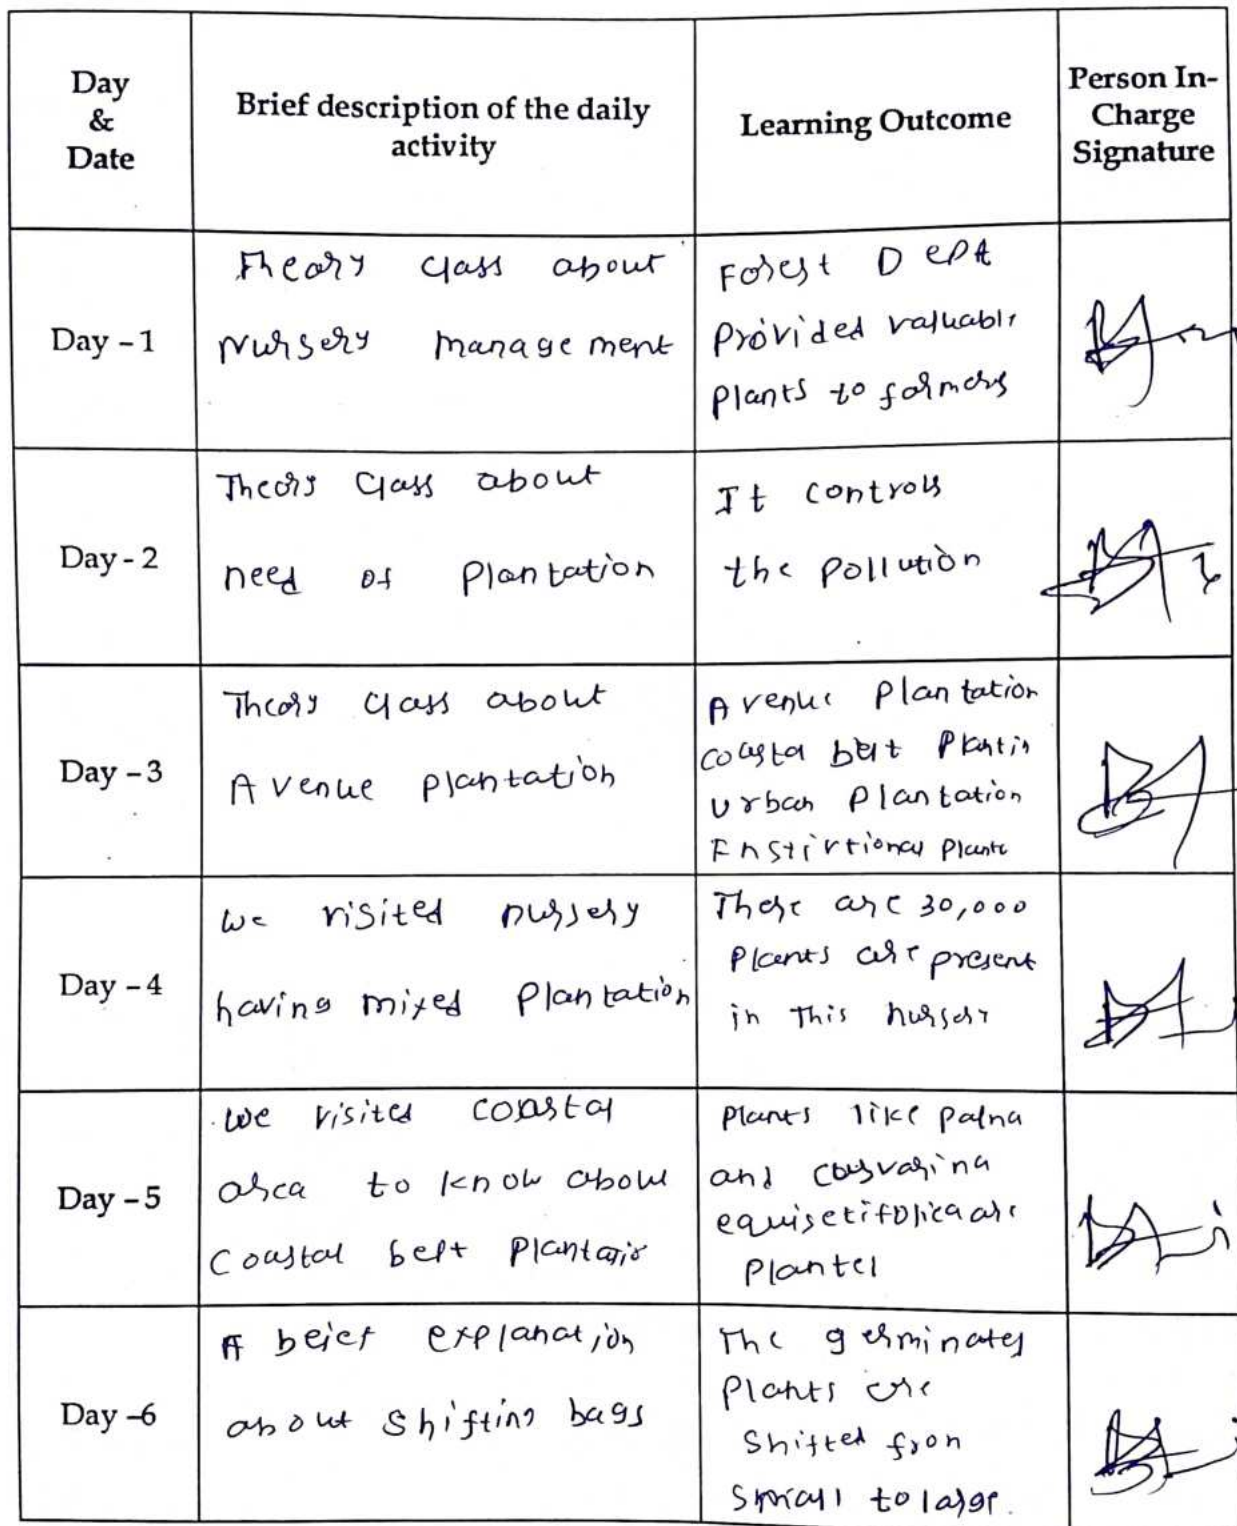 Day
&
Date
Brief description of the daily
activity
Learning Outcome
Person In-
Charge
Signature
Day - 1
Theory class about
Nursery management
Forest Dept
Provided valuable
plants to farmers
Day - 2
Theory class about
need of Plantation
It controls
the pollution
Day - 3
Theory class about
Avenue plantation
Avenue Plantation
coastal belt
Urban Plantation
Day - 4
we visited nursery
having mixed Plantation
There are 30,000
Plants are present
in this nursery
Day - 5
we visited coastal
area to know about
Coastal belt
Plants like
and
are
Day -6
A brief explanation
about shifting bags
The germinates
Plants are
Shifted from
small to large.